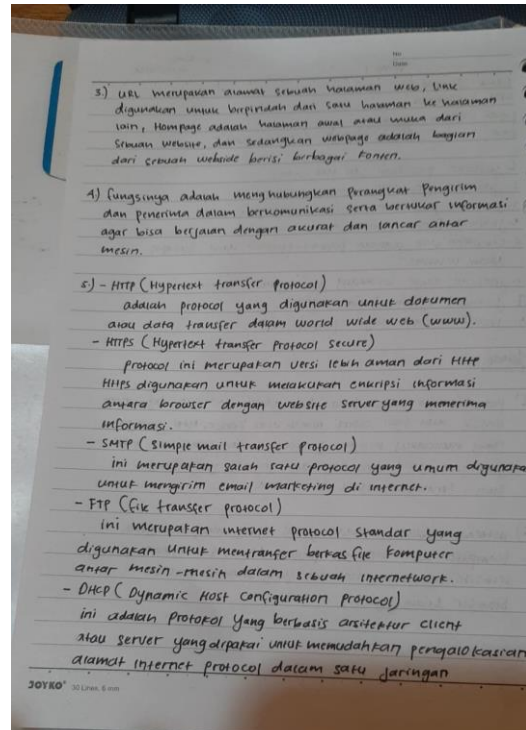 No
Date
3.) URL merupakan alamat sebuah halaman web, Link
digunakan untuk berpindah dari satu halaman ke halaman
lain, Hompage adalah halaman awal atau muka dari
sebuah website, dan sedangkan webpage adalah bagian
dari sebuah webside berisi berbagai konten.
4.) fungsinya adalah menghubungkan perangkat pengirim
dan penerima dalam berkomunikasi serta bertukar informasi
agar bisa berjalan dengan akurat dan lancar antar
mesin.
5.) - HTTP (Hypertext transfer Protocol)
adalah protocol yang digunakan untuk dokumen
atau data transfer dalam world wide web (www).
- HTTPS (Hypertext transfer Protocol secure)
protocol ini merupakan versi lebih aman dari HTTP
HTTPS digunakan untuk melakukan enkripsi informasi
antara browser dengan website server yang menerima
informasi.
- SMTP (simple mail transfer protocol)
ini merupakan salah satu protocol yang umum digunaka
untuk mengirim email marketing di internet.
- FTP (file transfer protocol)
ini merupakan internet protocol standar yang
digunakan untuk mentranfer berkas file komputer
antar mesin-mesin dalam sebuah internetwork.
- DHCP (Dynamic Host Configuration protocol)
ini adalah protokol yang berbasis arsitektur client
atau server yang dipakai untuk memudahkan pengalokasian
alamat internet protocol dalam satu jaringan
JOYKO 30 Lines, 6 mm